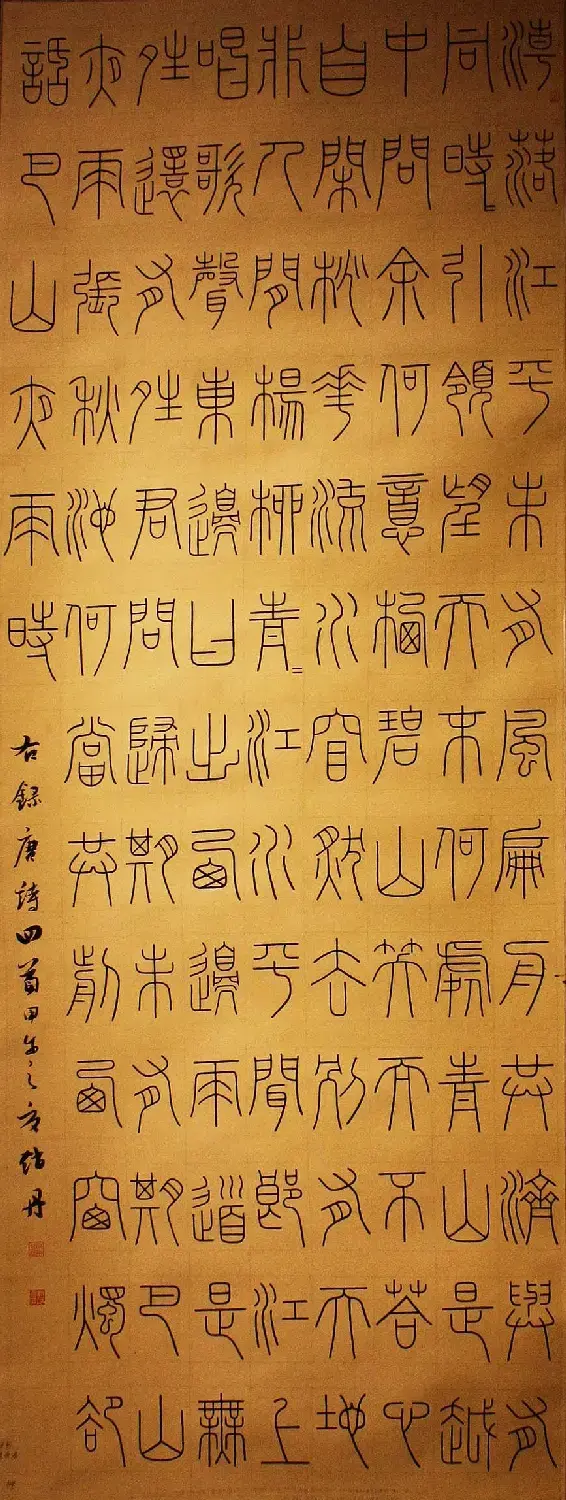 潮落江平未有風扁舟共濟與有
同時〻引領望天末何處青山是越
中問余何意栖碧山笑而不答心
自閑桃花流水窅然去別有天地
非人間楊柳青〻江水平聞郎江上
唱歌聲東邊日出西邊雨道是無
晴還有晴君問歸期未有期巴山
夜雨漲秋池何當共剪西窗燭卻
話巴山夜雨時
右錄唐詩四首甲午之丹